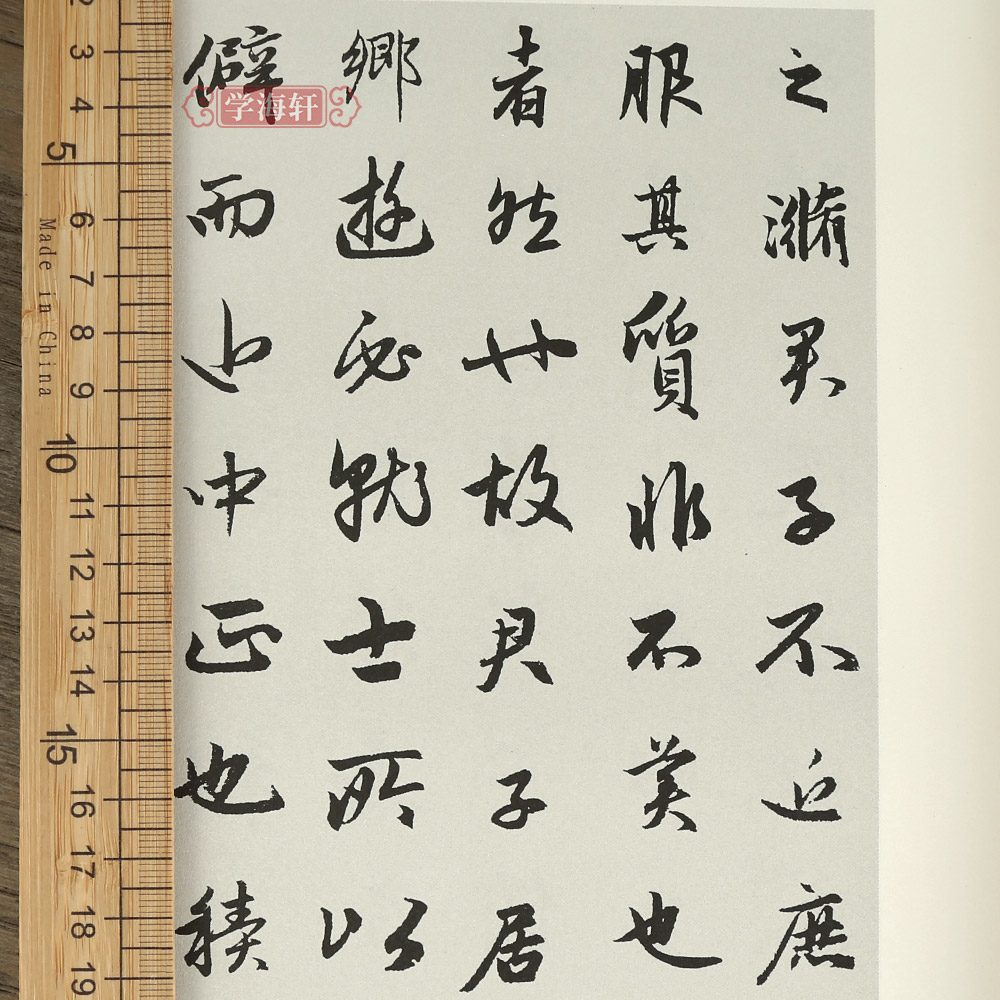 之滫君子不近庶
服其質非不美也
者然也故君子居
鄉遊必就士所以
僻而近中正也積
学海轩
2 3 4 5 6 7 8 9 10 11 12 13 14 15 16 17 18 19
Made in China